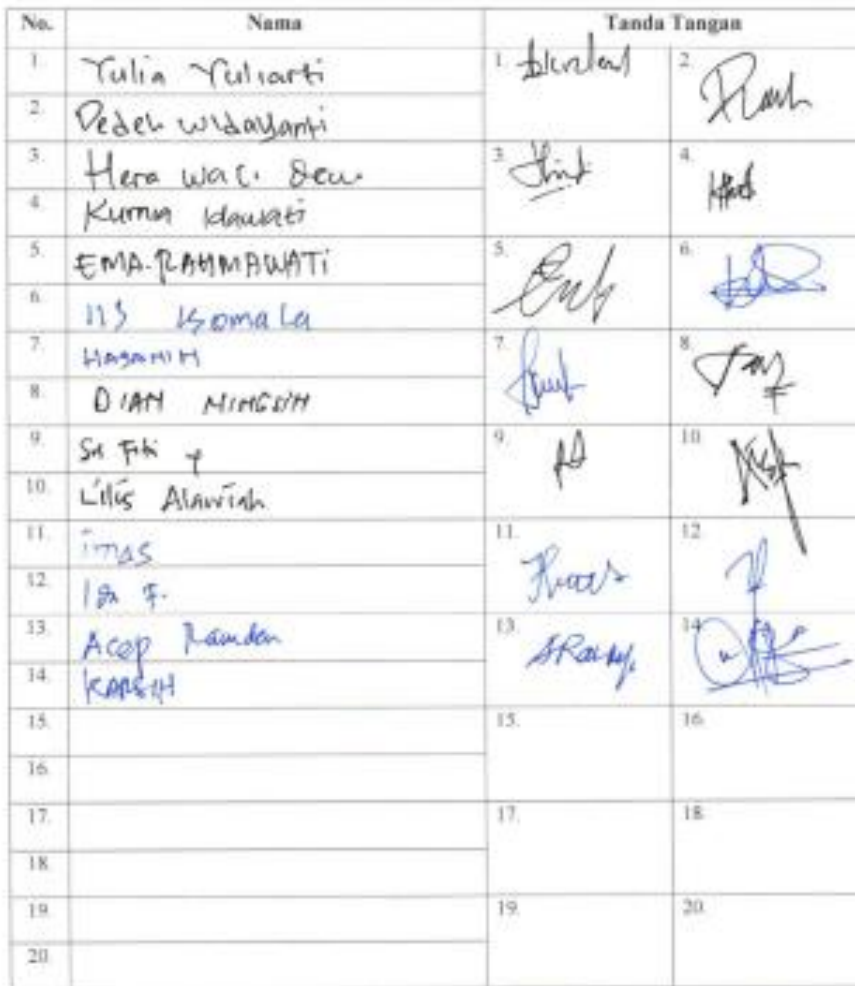 No. Nama Tanda Tangan
1. Yulia Yuliarti 1. 2.
2. Dedeh Widayanti
3. Hera Wati Dewi 3. 4.
4. Kurnia Idawati
5. EMA RAHMAWATi 5. 6.
6. IIS Komala
7. HASANIH 7. 8.
8. DIAN NINGSIH
9. Sri Fitri Y 9. 10.
10. Lilis Alawiah
11. imas 11. 12.
12. Ida F.
13. Acep Ramdan 13. 14.
14. KARSIH
15. 15. 16.
16.
17. 17. 18.
18.
19. 19. 20.
20.